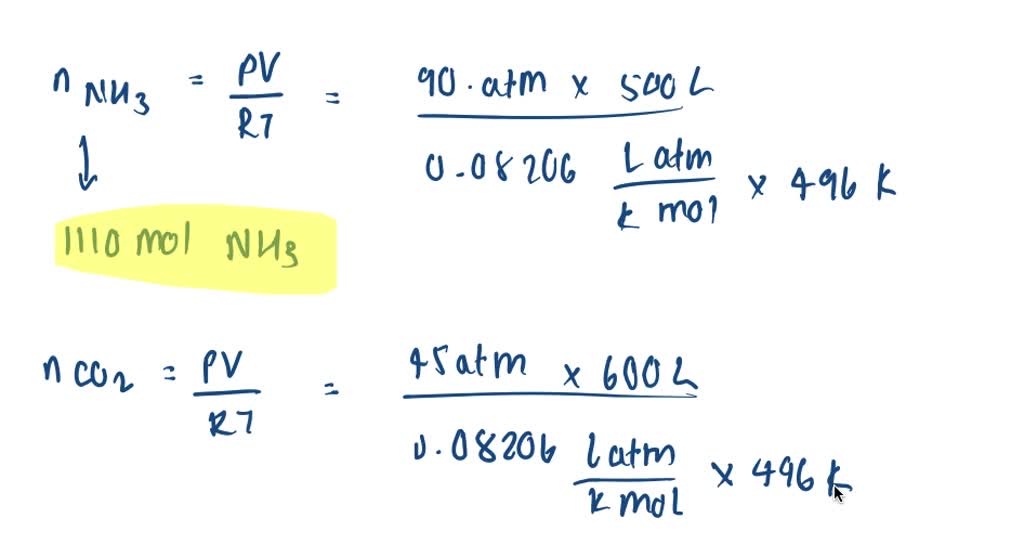 n NH3 = PV / RT = 90. atm x 500 L / 0.08206 L atm / K mol x 496 K
↓
1110 mol NH3
n CO2 = PV / RT = 45 atm x 600 L / 0.08206 L atm / K mol x 496 K